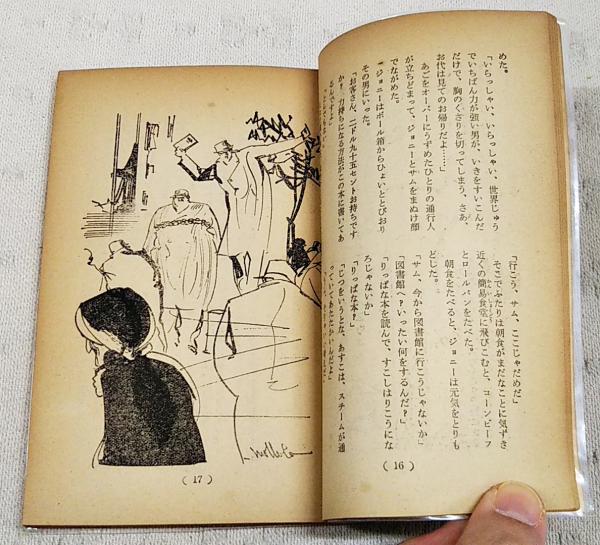 めた。
「いらっしゃい、いらっしゃい、世界じゅう
でいちばん力が強い男が、いきをすいこんだ
だけで、胸のくさりを切ってしまう、さあ、
お代は見てのお帰りだよ……」
あごをオーバーにうずめたひとりの通行人
が立ちどまって、ジョニーとサムをまぬけ顔
でながめた。
ジョニーはボール箱からひょいととびおり
その男にいった。
「お客さん、二ドル九十五セントお持ちです
か？力持ちになる方法がこの本に書いてあ
るんですよ」
「行こう、サム、ここじゃだめだ」
そこでふたりは朝食がまだなことに気ずき
近くの簡易食堂に飛びこむと、コーンビーフ
とロールパンをたべた。
朝食をたべると、ジョニーは元気をとりも
どした。
「サム、今から図書館に行こうじゃないか」
「図書館へ？いったい何をするんだ？」
「りっぱな本を読んで、すこしはりこうにな
ろじゃないか」
「りっぱな本？」
「じつをいうとな、あすこは、スチームが通
っていてあたたかいんだよ」
(16)
(17)